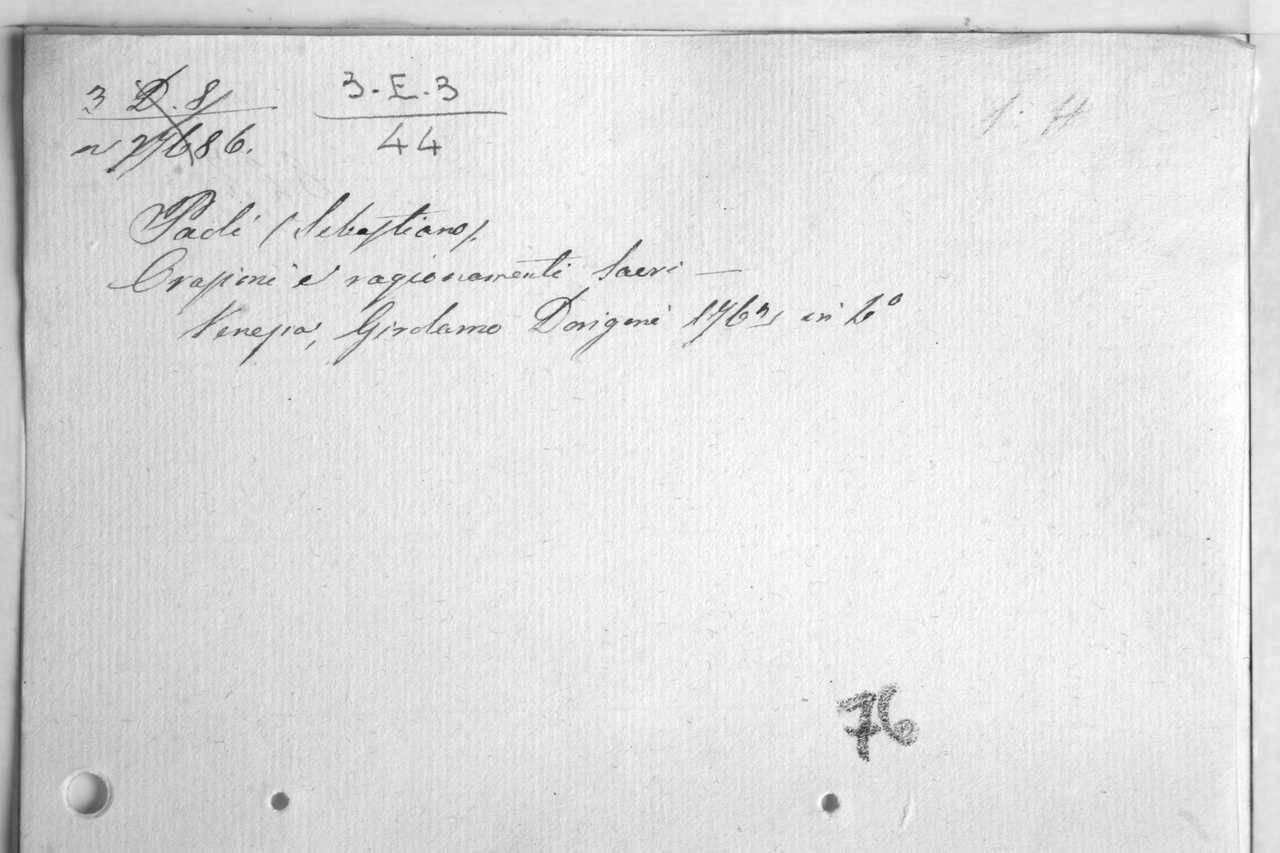 3 D. 8
3-E-3
n 27686.
44
Paoli (Sebastiano).
Orazioni e ragionamenti sacri —
Venezia, Girolamo Dorigoni 1763 in 6°
76